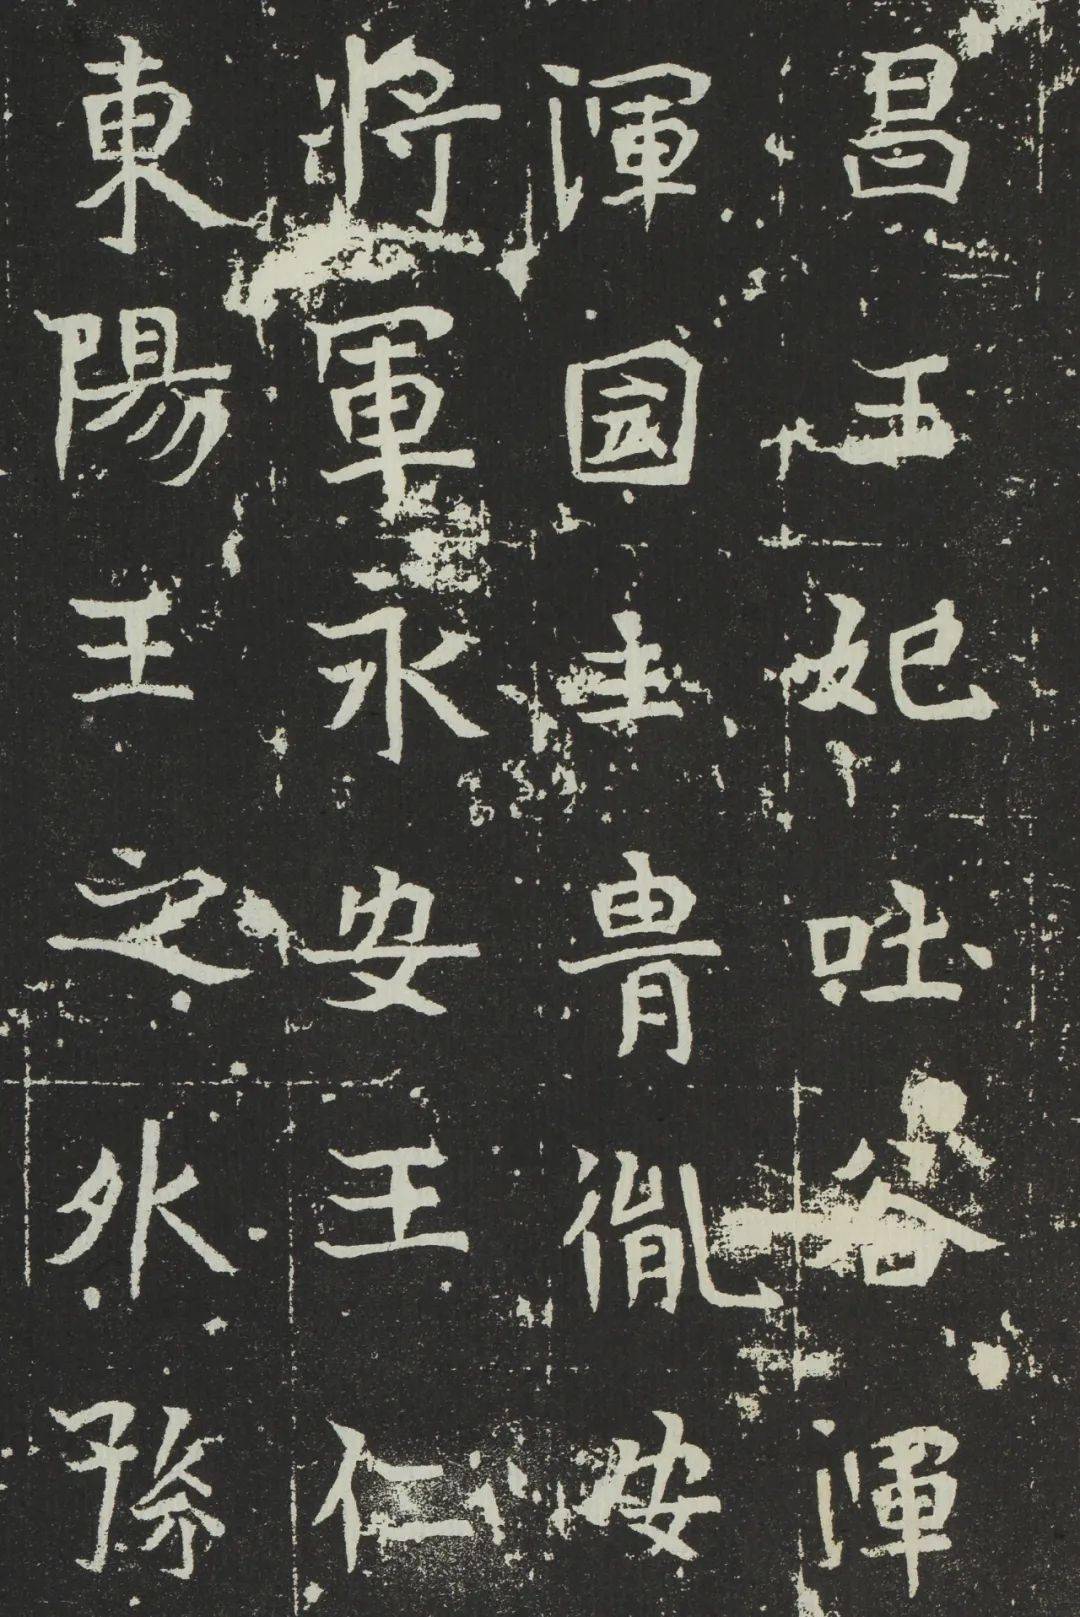 昌王妃吐谷渾
渾國主胄胤安
將軍永安王仁
東陽王之外孫